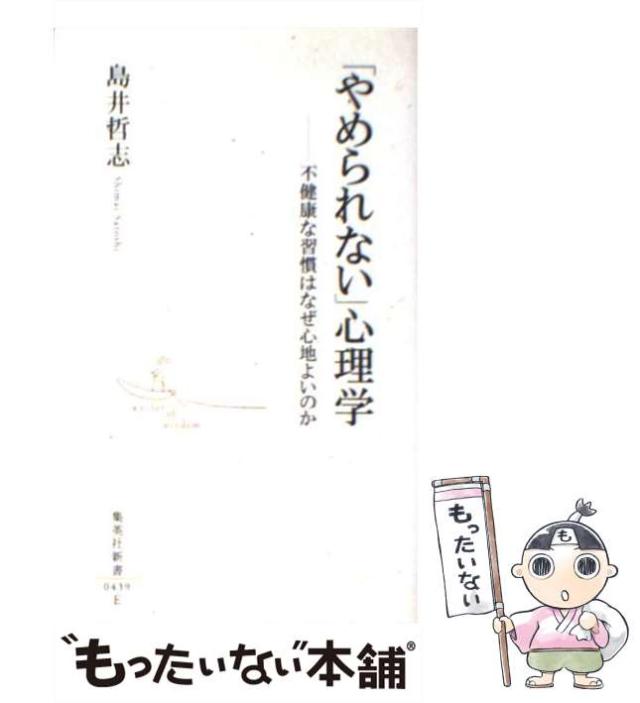 「やめられない」心理学
──不健康な習慣はなぜ心地よいのか
島井哲志
Shimai Satoshi
a pilot of
wisdom
集英社新書
0439
E
もったいない
も
"もったいない"本舗®